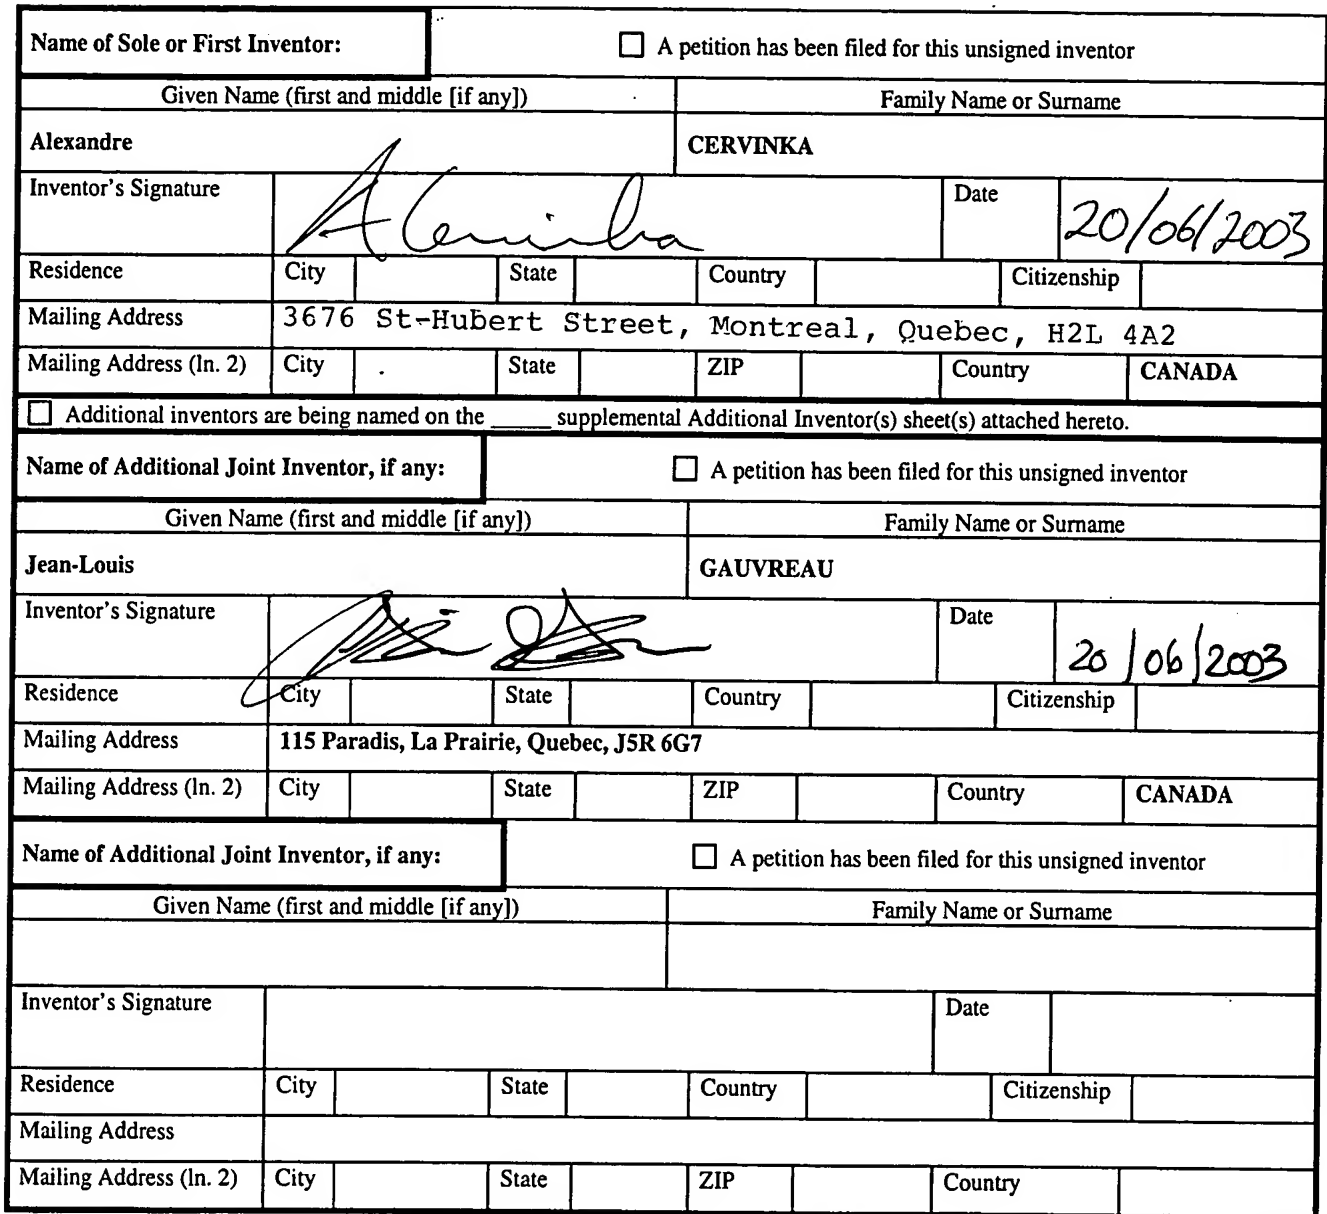 Name of Sole or First Inventor: A petition has been filed for this unsigned inventor
Given Name (first and middle [if any]) Family Name or Surname
Alexandre CERVINKA
Inventor's Signature A Cervinka Date 20/06/2003
Residence City State Country Citizenship
Mailing Address 3676 St-Hubert Street, Montreal, Quebec, H2L 4A2
Mailing Address (ln. 2) City State ZIP Country CANADA
Additional inventors are being named on the _____ supplemental Additional Inventor(s) sheet(s) attached hereto.
Name of Additional Joint Inventor, if any: A petition has been filed for this unsigned inventor
Given Name (first and middle [if any]) Family Name or Surname
Jean-Louis GAUVREAU
Inventor's Signature Date 20/06/2003
Residence City State Country Citizenship
Mailing Address 115 Paradis, La Prairie, Quebec, J5R 6G7
Mailing Address (ln. 2) City State ZIP Country CANADA
Name of Additional Joint Inventor, if any: A petition has been filed for this unsigned inventor
Given Name (first and middle [if any]) Family Name or Surname
Inventor's Signature Date
Residence City State Country Citizenship
Mailing Address
Mailing Address (ln. 2) City State ZIP Country